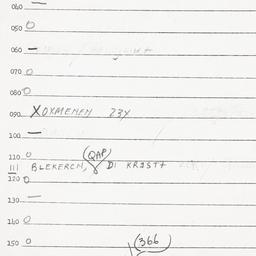 060 —
050 0
060 —
070 0
080 0
090 XOXMEMEM 23Y
100 —
110 0 (QAP)
111 BLEKERCH, DI KRISTA
120 0
130 —
140 0
150 0 (366)